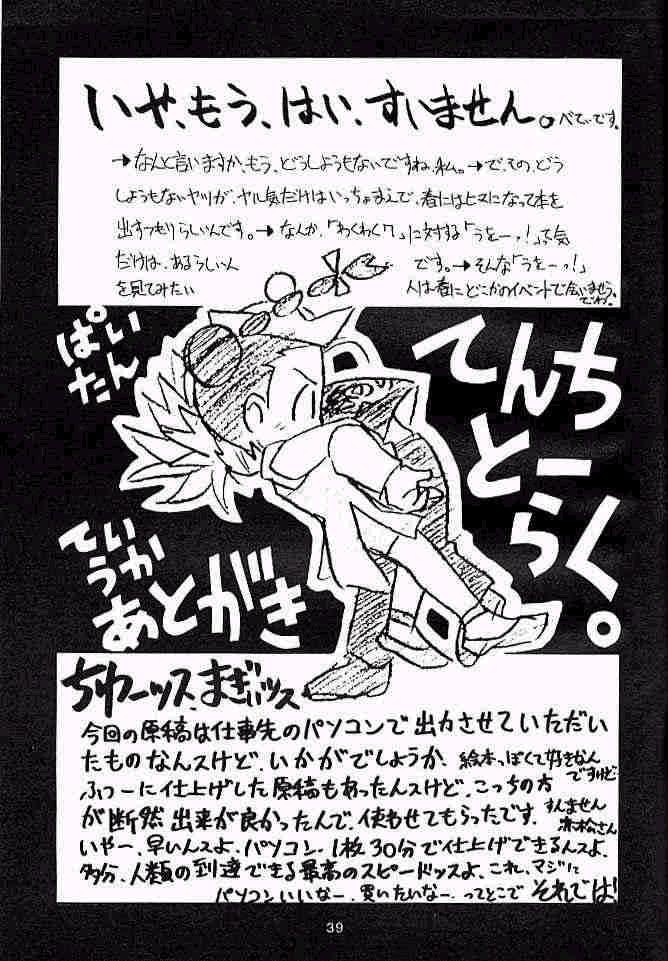 いや、もう、はい、すいません。べてぃです。
→なんと言いますか、もう、どうしようもないですね、私。→で、その、どう
しようもないヤツが、ヤル気だけはいっちょまえで、春にはヒマになって本を
出すつもりらしいんです。→なんか、「わくわく7」に対する「うをーっ！」って気
だけは、あるらしいんです。→そんな「うをーっ！」
を見てみたい人は春にどこかのイベントで会いませう。
でわ。
ぱい
たん
てんち
とーく
らく。
ていうか
あとがき
ちゅーッス、まぎぃッス
今回の原稿は仕事先のパソコンで出力させていただい
たものなんスけど、いかがでしょうか、絵本っぽくて好きなん
ですけど
ふつーに仕上げした原稿もあったんスけど、こっちの方
が断然出来が良かったんで、使わせてもらったです、すんません
赤松さん
いやー、早いんスよ、パソコン、1枚30分で仕上げできるんスよ、
多分、人類の到達できる最高のスピードッスよ、これ、マジに
パソコンいいなー、買いたいなー、ってとこで それでは！
39